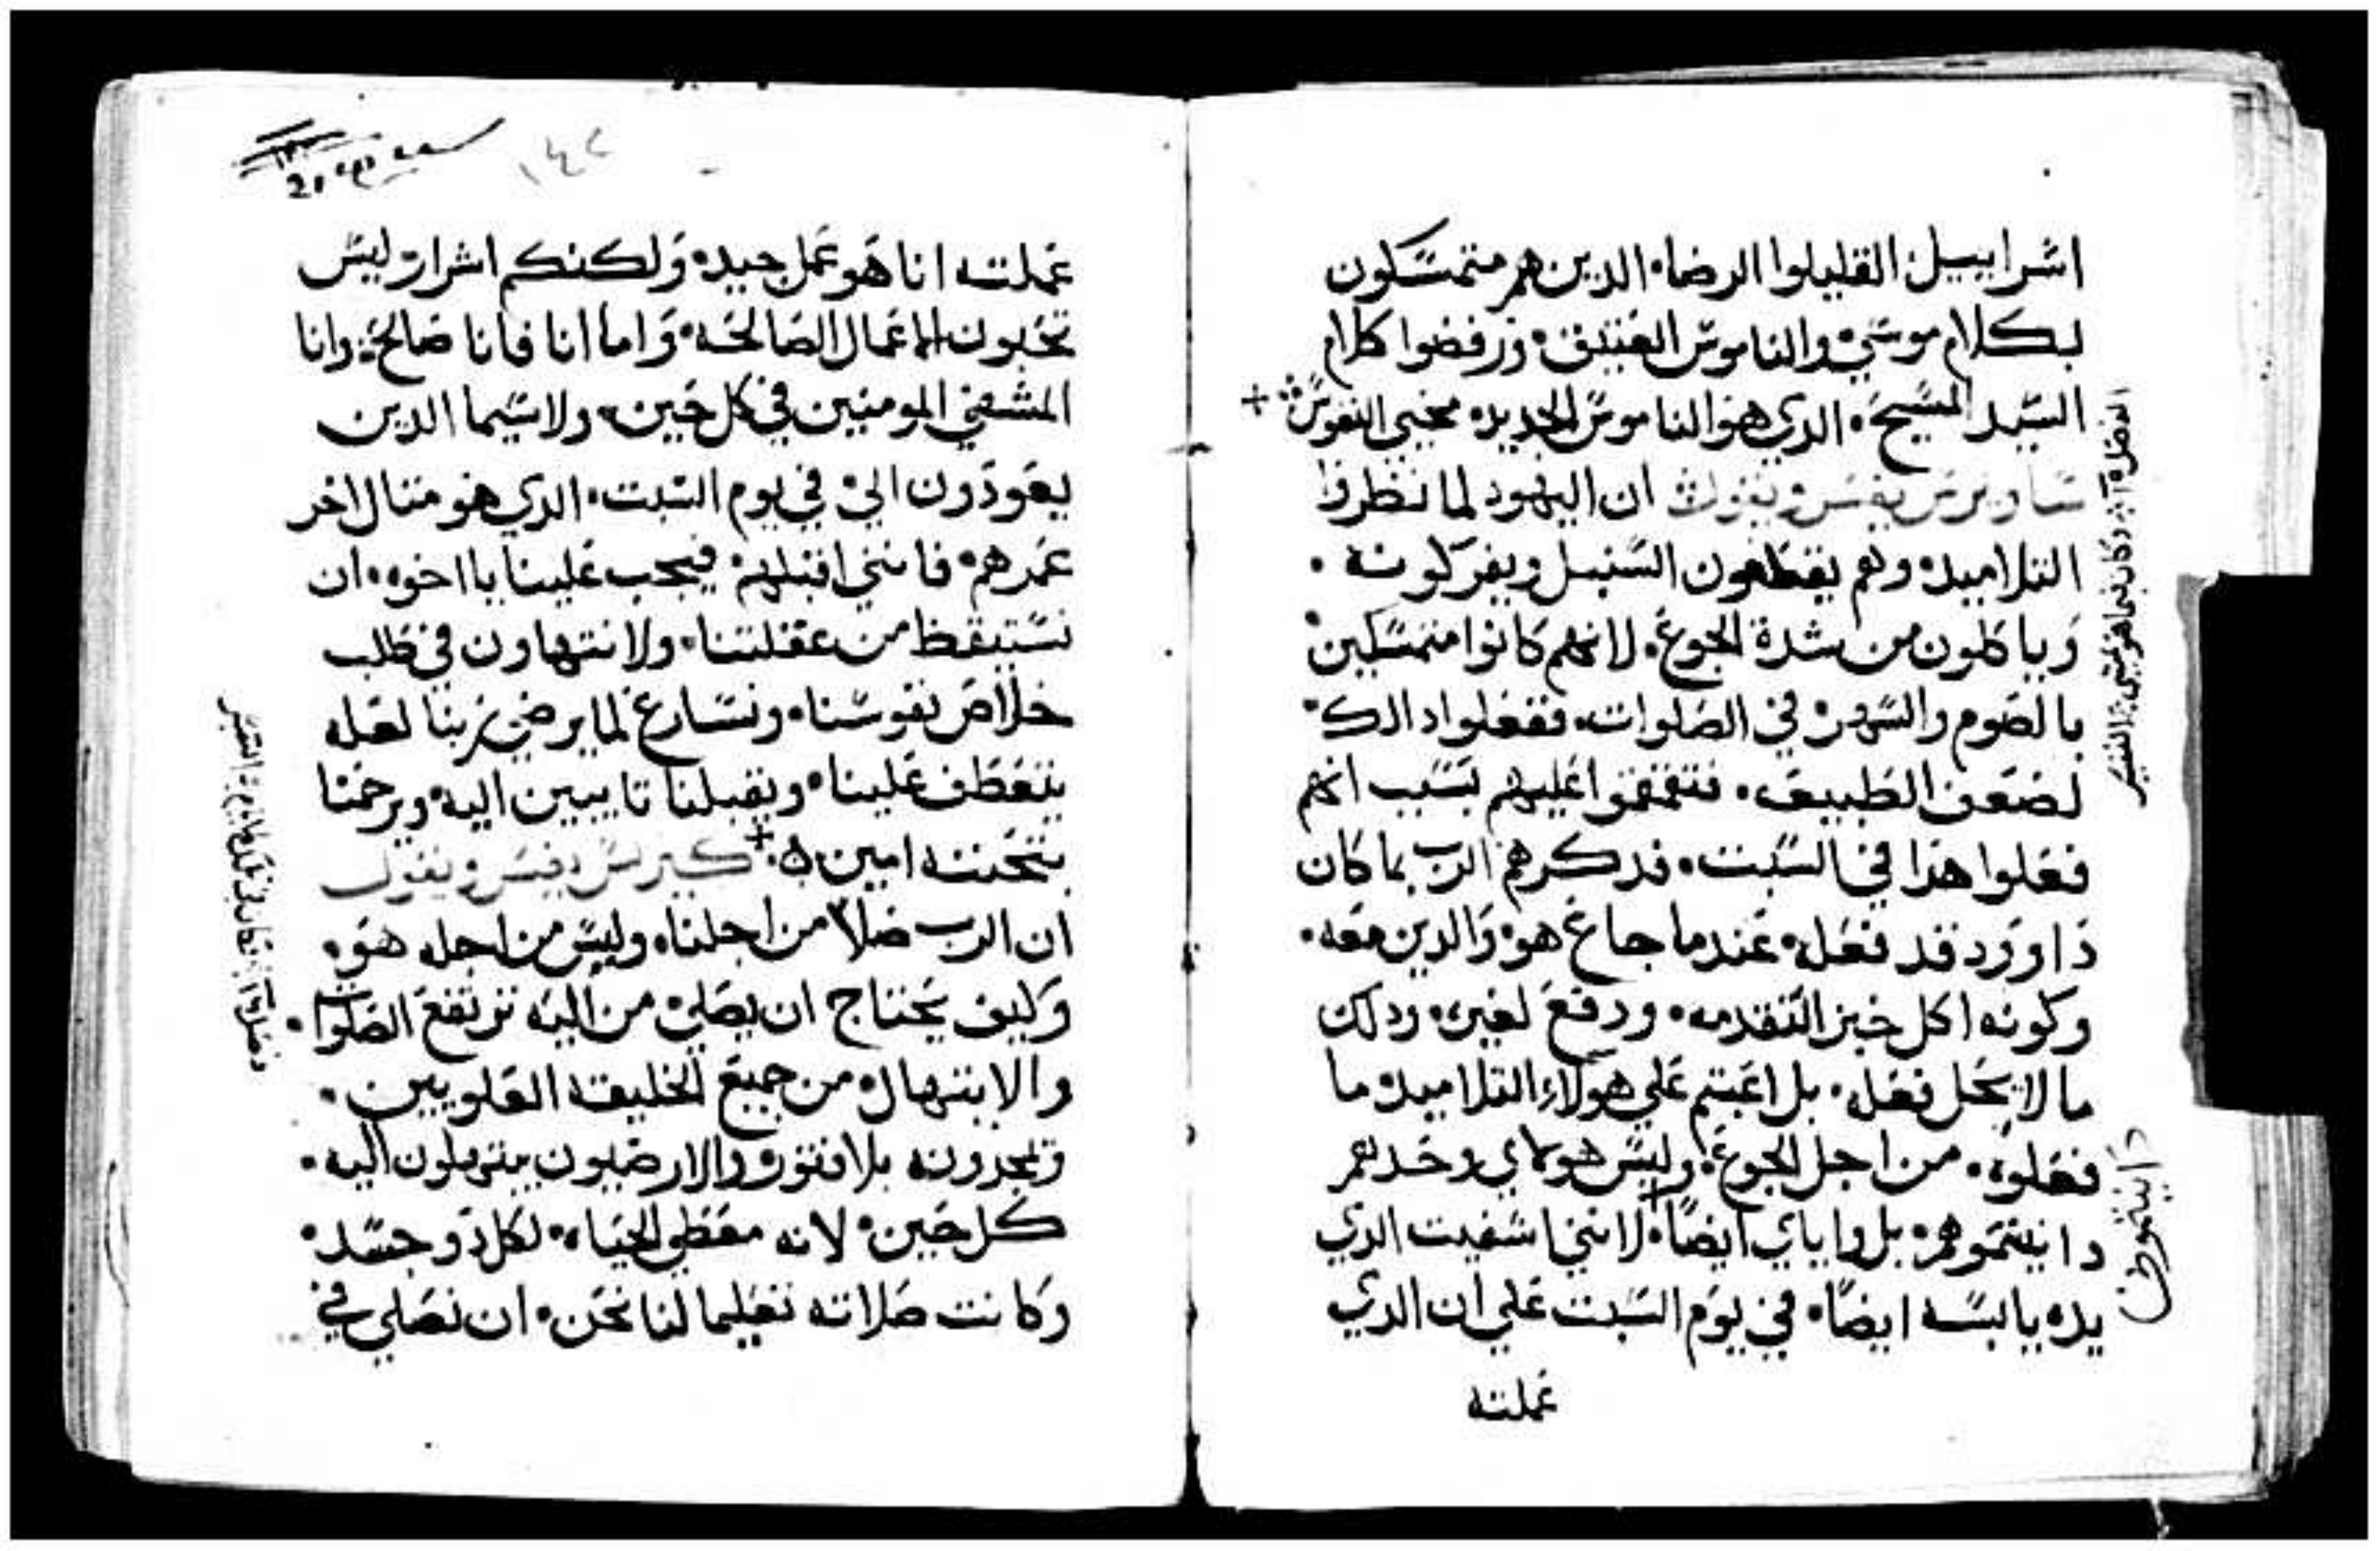 اسراييل القليلوا الرضا، الدين هم متمسكون
بكلام موسي والناموس العتيق، ورفضوا كلام
السيد المسيح، الدي هو الناموس الجديد، محيي النفوس +
ساويرس يفسر ويقول ان اليهود لما نظروا
التلاميد، وهم يقطعون السنبل ويفركونه.
وياكلون من شدة الجوع، لانهم كانوا متمسكين
بالصوم والسهر، في الصلوات، ففعلوا دالك
لضعف الطبيعه، فتقمقموا عليهم بسبب انهم
فعلوا هذا في السبت، فدكرهم الرب بما كان
داوود قد فعله، عندما جاع هو، والدين معه.
وكونه اكل خبز التقدمه، ودفع لغيره، ودلك
ما لا يحل فعله، بل اعبتم علي هولاء التلاميد، ما
فعلوه، من اجل الجوع، وليس هولاي وحدهم
داينتموهم، بل واياي ايضًا، لانني اشفيت الدي
يده يابسه ايضًا، في يوم السبت علي ان الدي
عملته
داينتموهم
١٤٢
عملته انا هو عمل جيد، ولكنكم اشرار، ليس
تحبون الاعمال الصالحه، واما انا فانا صالح، وانا
المشفي المومنين في كل حين، ولاسيما الدين
يعودون الي، في يوم السبت، الدي هو متال اخر
عمرهم، فانني اقبلهم، فيجب علينا يا اخوه، ان
نستيقظ من غفلتنا، ولا نتهاون في طلب
خلاص نفوسنا، ونسارع لما يرضي ربنا لعله
يتعطف علينا، ويقبلنا تايبين اليه، ويرحمنا
بتحننه امين + كيرلس يفسر ويقول
ان الرب صلا، من اجلنا، وليس من اجله هو،
وكيف يحتاج ان يصلي، من اليه ترتفع الصلوات.
والابتهال، من جميع الخليقه العلويين.
وتمجدونه بلا فتور، والارضيون يبتهلون اليه.
كل حين، لانه معطي الحياه، لكل دو جسد،
وكانت صلاته تعليما لنا نحن، ان نصلي في